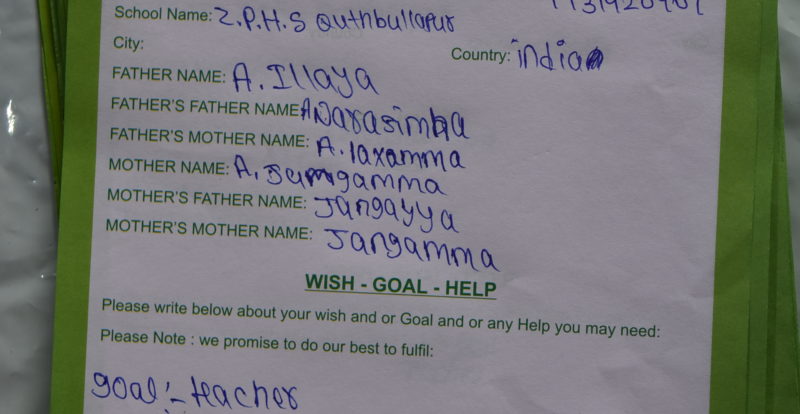 School Name: Z.P.H.S Quthbullapur
City: Country: india
FATHER NAME: A. Illaya
FATHER'S FATHER NAME A Narasimha
FATHER'S MOTHER NAME: A. laxamma
MOTHER NAME: A.
MOTHER'S FATHER NAME: Jangayya
MOTHER'S MOTHER NAME: Jangamma
WISH - GOAL - HELP
Please write below about your wish and or Goal and or any Help you may need:
Please Note : we promise to do our best to fulfil:
goal:- teacher